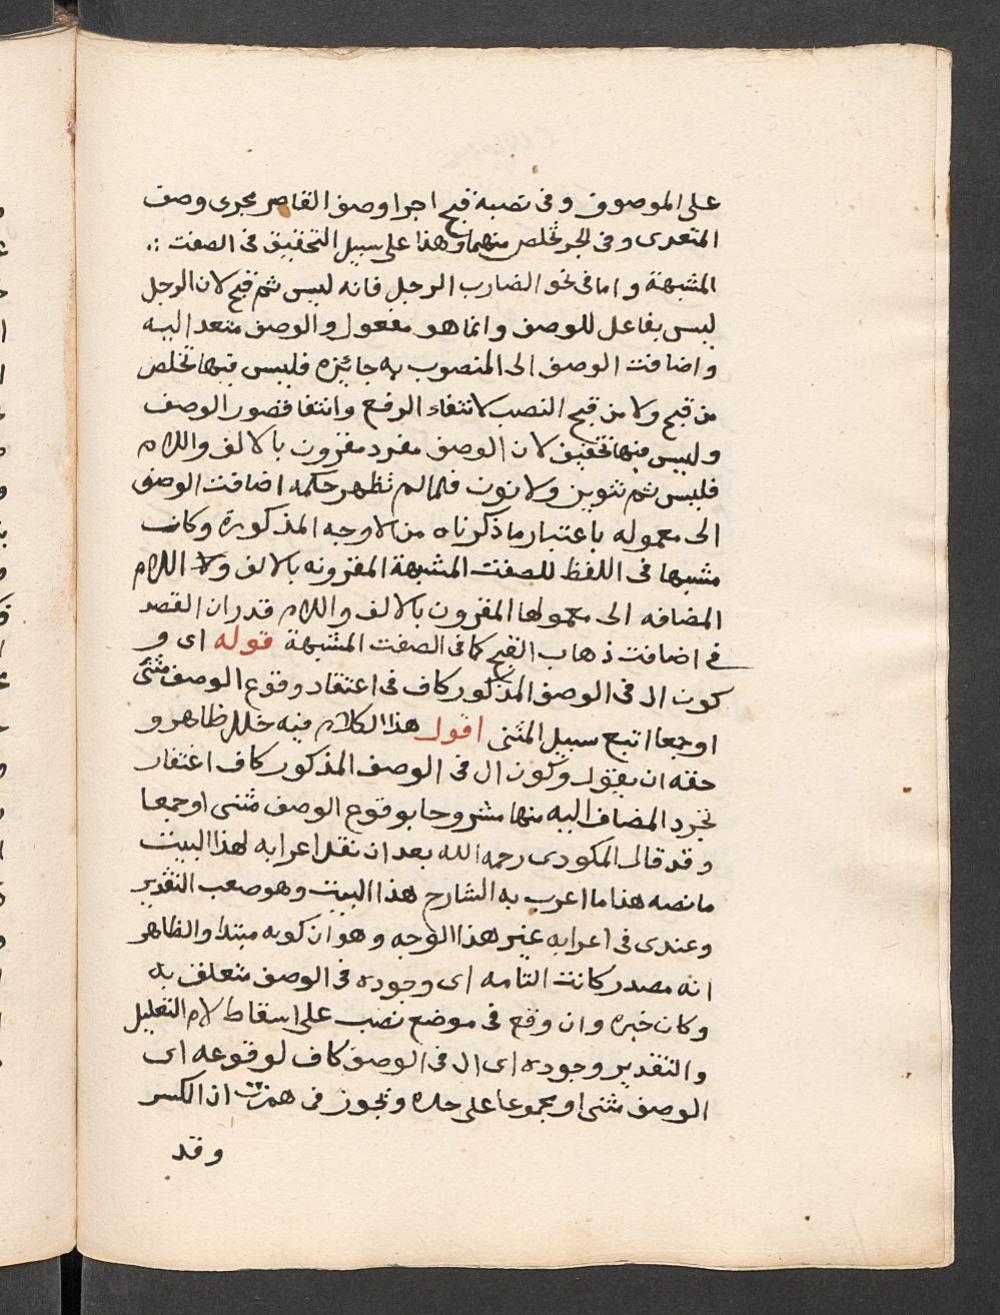 على الموصوف وفى نصبه قبح اجرا وصف القاصر مجرى وصف
المتعدى وفى الجر تخلص منهما وهذا على سبيل التحقيق فى الصفت
المشبهة واما فى نحو الضارب الرجل فانه ليس ثم قبح لان الرجل
ليس بفاعل للوصف وانما هو مفعول والوصف متعد اليه
واضافت الوصف الى المنصوب به جائزه فليس فيها تخلص
من قبح ولا من قبح النصب لانتفاء الرفع وانتفا قصور الوصف
وليس فيها تخفيف لان الوصف مفرد مقرون بالالف واللام
فليس ثم تنوين ولا نون فلما لم تظهر حكمه اضافت الوصف
الى معموله باعتبار ما ذكرناه من الاوجه المذكورة وكان
مشبها فى اللفظ للصفت المشبهة المقرونه بالالف ولا اللام
المضافه الى معمولها المقرون بالالف واللام قدر ان القصد
فى اضافت ذهاب القبح كما فى الصفت المشبهة قوله اى و
كون ال فى الوصف المذكور كاف فى اعتقاد وقوع الوصف مثنى
او جمعا اتبع سبيل المثنى اقول هذا الكلام فيه خلل ظاهر و
حقه ان يقول وكون ال فى الوصف المذكور كاف اغتفار
تجرد المضاف اليه منها مشروحا بوقوع الوصف مثنى او جمعا
وقد قال المكودى رحمه الله بعد ان نقل اعرابه لهذا البيت
ما نصه هذا ما اعرب به الشارح هذا البيت وهو صعب التقدير
وعندى فى اعرابه غير هذا الوجه وهو ان كونه مبتدا والظاهر
انه مصدر كانت التامه اى وجوده فى الوصف متعلق به
وكان خبره وان وقع فى موضع نصب على اسقاط لام التعليل
والتقدير وجوده اى ال فى الوصف كاف لوقوعه اى
الوصف مثنى او مجموعا على حده وتجوز فى همزت ان الكسر
وقد